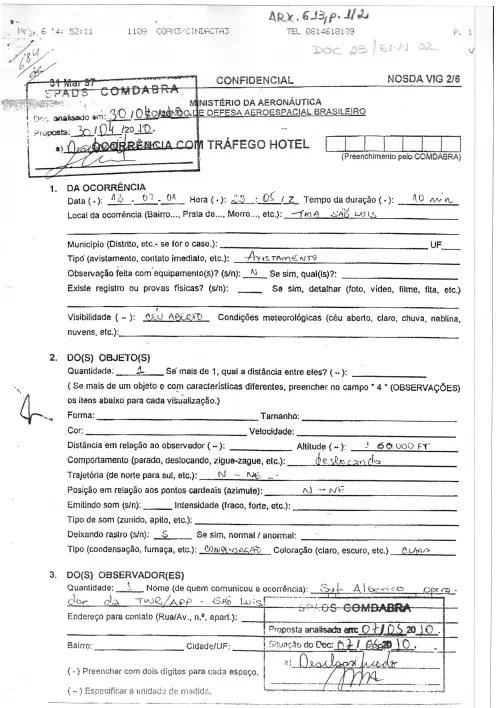 ARX. 613, p. 1/2
6 '4: 52:11 1109 COPM3/CINDACTA3 TEL 0814618109 P. 1
DOC 25/ENN 02
31 Mar 97 CONFIDENCIAL NOSDA VIG 2/6
SPADS COMDABRA
MINISTÉRIO DA AERONÁUTICA
Doc. analisado em: 30/04/2010 DE DEFESA AEROESPACIAL BRASILEIRO
Proposta: 30/04/2010.
a) OCORRÊNCIA COM TRÁFEGO HOTEL
(Preenchimento pelo COMDABRA)
1. DA OCORRÊNCIA
Data (-): 12 - 07 - 01 Hora (-): 23 : 05 / Z Tempo da duração (-): 10 min
Local da ocorrência (Bairro..., Praia de..., Morro..., etc.): TMA SÃO LUIS
Município (Distrito, etc.- se for o caso.): UF
Tipo (avistamento, contato imediato, etc.): AVISTAMENTO
Observação feita com equipamento(s)? (s/n): N Se sim, qual(is)?:
Existe registro ou provas físicas? (s/n): Se sim, detalhar (foto, vídeo, filme, fita, etc.)
Visibilidade ( ~ ): CÉU ABERTO Condições meteorológicas (céu aberto, claro, chuva, neblina,
nuvens, etc.):
2. DO(S) OBJETO(S)
Quantidade: 1 Se mais de 1, qual a distância entre eles? ( ~ ):
( Se mais de um objeto e com características diferentes, preencher no campo " 4 " (OBSERVAÇÕES)
os itens abaixo para cada visualização.)
Forma: Tamanho:
Cor: Velocidade:
Distância em relação ao observador ( ~ ): Altitude ( ~ ): 60.000 FT
Comportamento (parado, deslocando, zigue-zague, etc.): deslocando
Trajetória (de norte para sul, etc.): N - NE
Posição em relação aos pontos cardeais (azimute): N - NE
Emitindo som (s/n): Intensidade (fraco, forte, etc.):
Tipo de som (zunido, apito, etc.):
Deixando rastro (s/n): S Se sim, normal / anormal:
Tipo (condensação, fumaça, etc.): CONDENSAÇÃO Coloração (claro, escuro, etc.) CLARA
3. DO(S) OBSERVADOR(ES)
Quantidade: 1 Nome (de quem comunicou a ocorrência): Sgt Alberico opera-
dor da TWR/APP - SÃO LUIS
Endereço para contato (Rua/Av., n.º, apart.):
Bairro: Cidade/UF:
SPADS COMDABRA
Proposta analisada em: 07/05 2010.
Situação do Doc: 07/05 2010.
a) Desclassificado
( - ) Preencher com dois dígitos para cada espaço.
( ~ ) Especificar a unidade de medida.